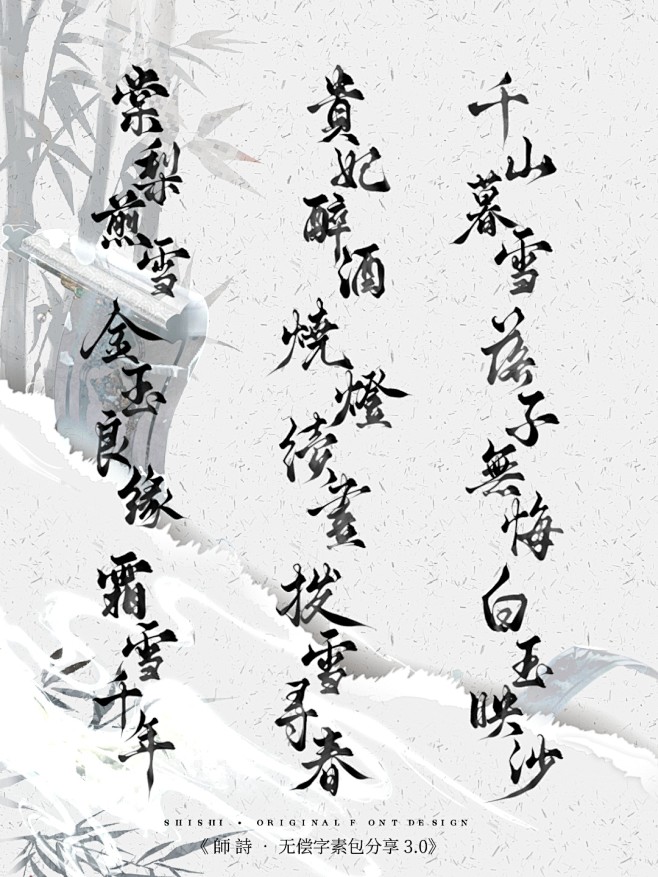 千山暮雪
落子無悔
白玉映沙
貴妃醉酒
燒燈續晝
拨雪寻春
棠梨煎雪
金玉良緣
霜雪千年
SHISHI · ORIGINAL FONT DESIGN
《師詩 · 无偿字素包分享 3.0》